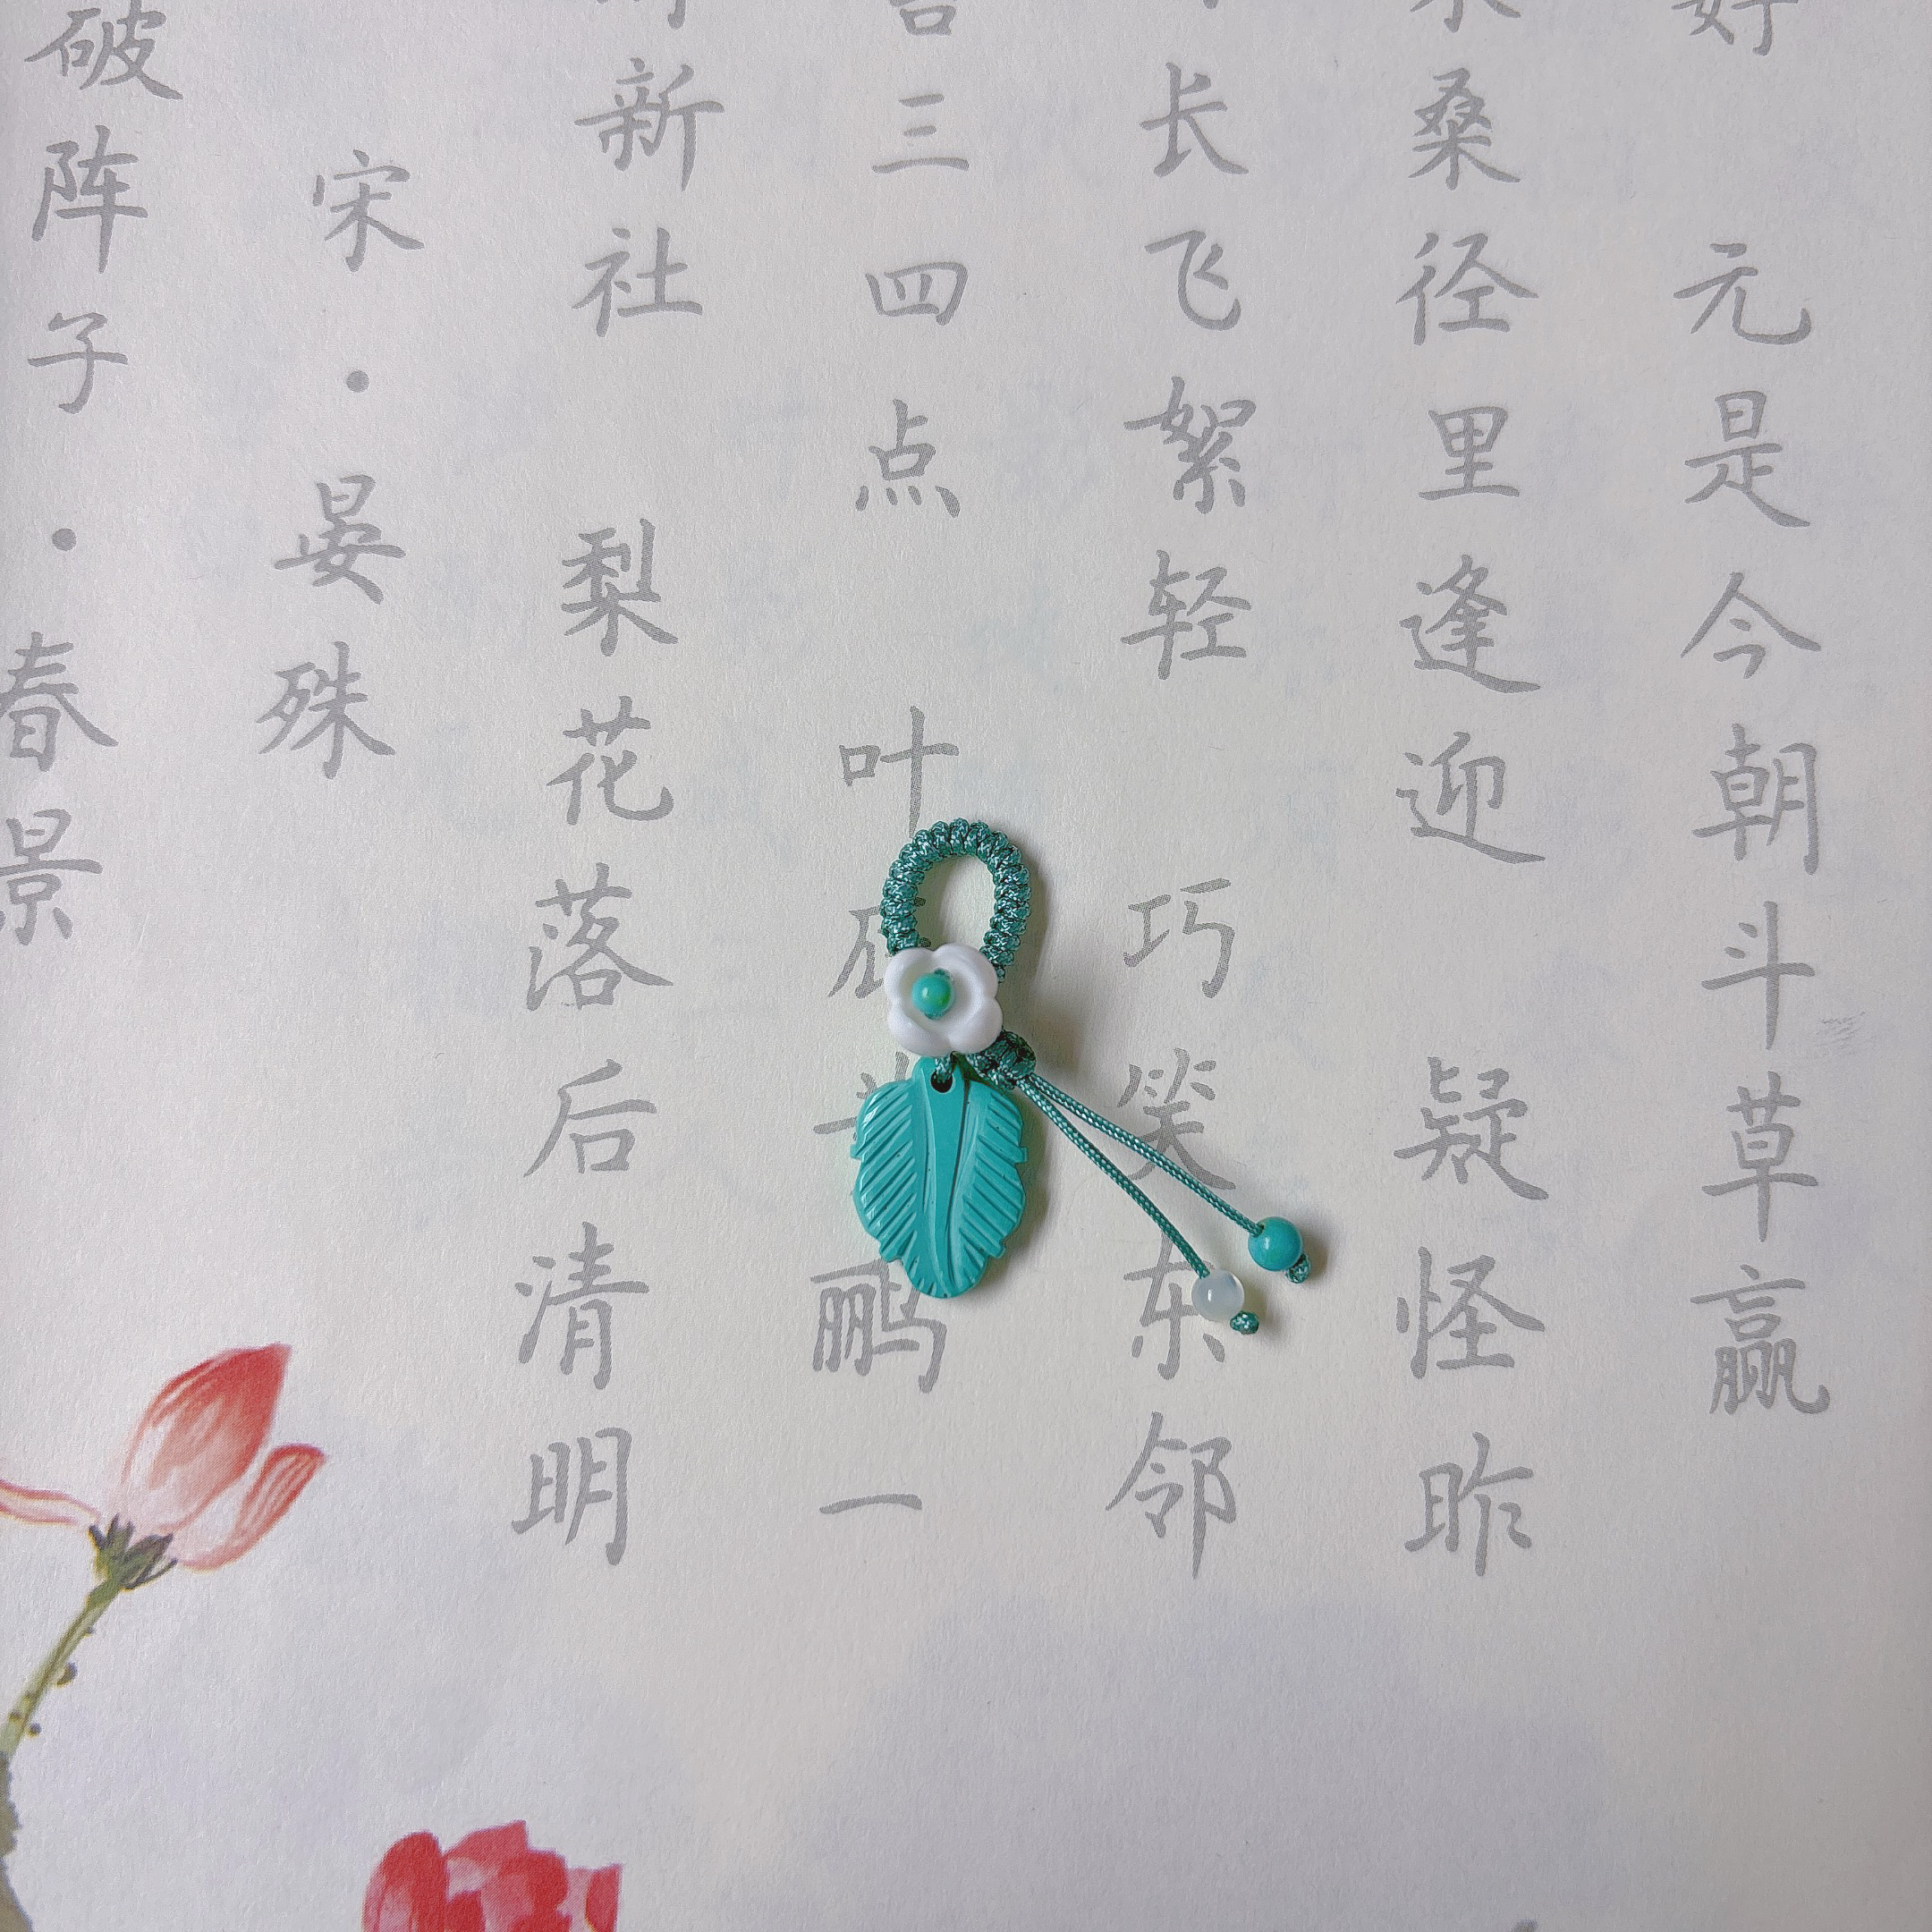 破阵子·春景
宋·晏殊
新社 梨花落后清明
三四点 叶 鹂一
长飞絮轻 巧笑东邻
桑径里逢迎 疑怪昨
好 元是今朝斗草赢